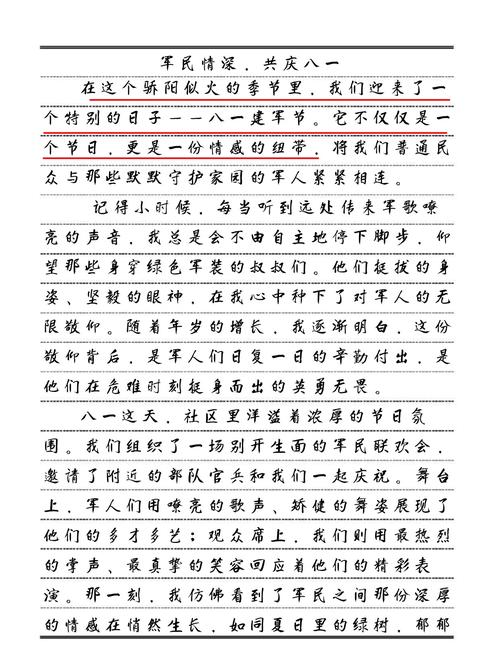 军民情深，共庆八一
在这个骄阳似火的季节里，我们迎来了一
个特别的日子——八一建军节。它不仅仅是一
个节日，更是一份情感的纽带，将我们普通民
众与那些默默守护家园的军人紧紧相连。
记得小时候，每当听到远处传来军歌嘹
亮的声音，我总是会不由自主地停下脚步，仰
望那些身穿绿色军装的叔叔们。他们挺拔的身
姿、坚毅的眼神，在我心中种下了对军人的无
限敬仰。随着年岁的增长，我逐渐明白，这份
敬仰背后，是军人们日复一日的辛勤付出，是
他们在危难时刻挺身而出的英勇无畏。
八一这天，社区里洋溢着浓厚的节日氛
围。我们组织了一场别开生面的军民联欢会，
邀请了附近的部队官兵和我们一起庆祝。舞台
上，军人们用嘹亮的歌声、矫健的舞姿展现了
他们的多才多艺；观众席上，我们则用最热烈
的掌声、最真挚的笑容回应着他们的精彩表
演。那一刻，我仿佛看到了军民之间那份深厚
的情感在悄然生长，如同夏日里的绿树，郁郁